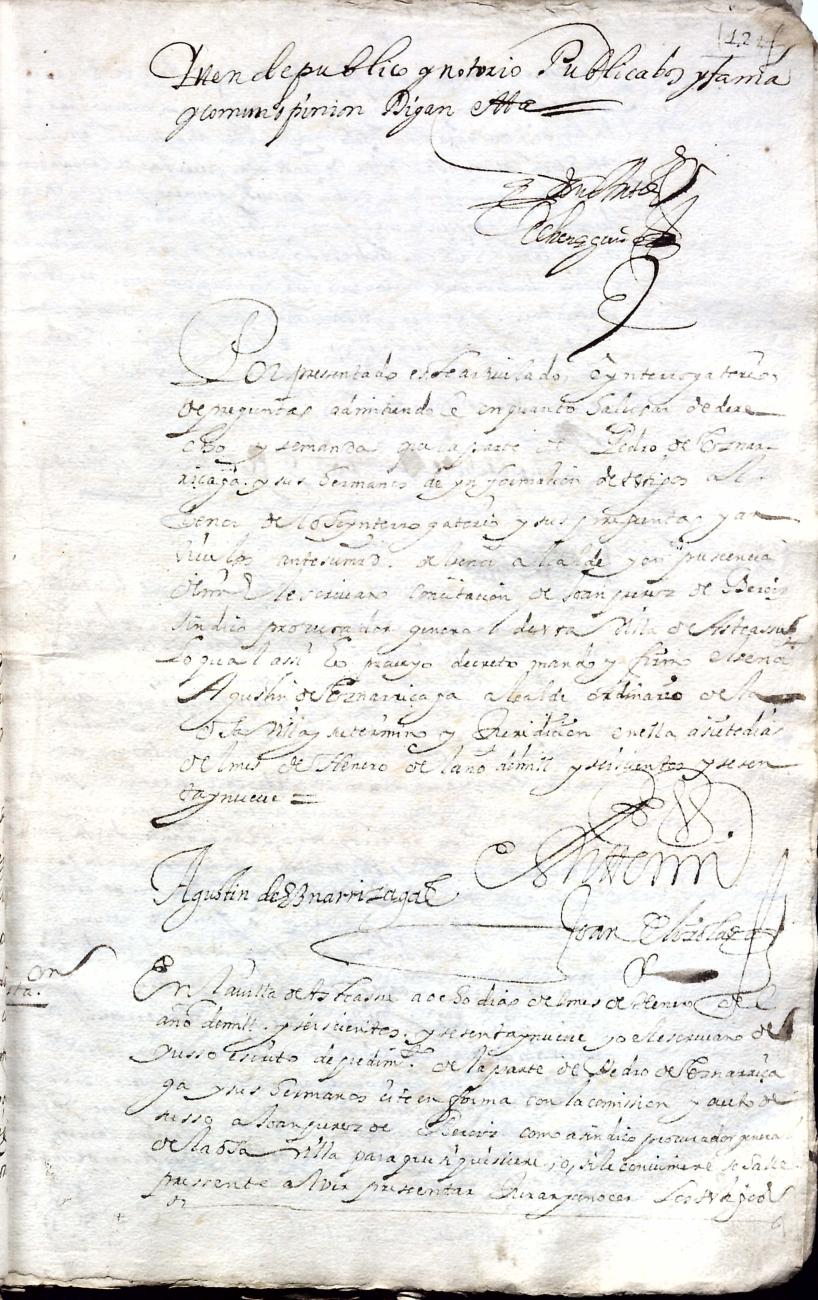 121
Iten de publico y notorio Publica boz y fama
y comun opinion Digan etta
Por presentado este articulado, e ynterrogatorio,
de preguntas admitiendole en quanto a lugar de dere
cho y se manda que la parte de Pedro de Eznar
riçaga y sus hermanos de ynformacion de testigos al
tenor de los ynterrogatorio y sus preguntas y ar
ticulos ante su md. del senor alcalde y por presencia
de mi el escriuano con citacion de Joan perez de
sindico procurador general de esta Villa de Asteassu
lo qual assi lo proueyo decreto mando y firmo el senor
Agustin de Eznarriçaga alcalde ordinario de la
dha Villa y su termino y Juridicion en ella a siete dias
del mes de Henero de l año de mill y seiscientos y sesen
ta y nueue =
Ante mi
Agustin de Eznarrizaga
Joan
En la villa de Asteassu a ocho dias del mes de Henero del
año de mill y seiscientos y sesenta y nueue yo el escriuano de
yusso escrito de pedimto de la parte de Pedro de Eznarriça
ga y sus hermanos cite en forma con la comission y auto de
susso a Joan perez de como a sindico procurador general
de la dha Villa para que si quisiere o si le conuiniere se halle
pressente a ver pressentar Jurar y conocer los testigos